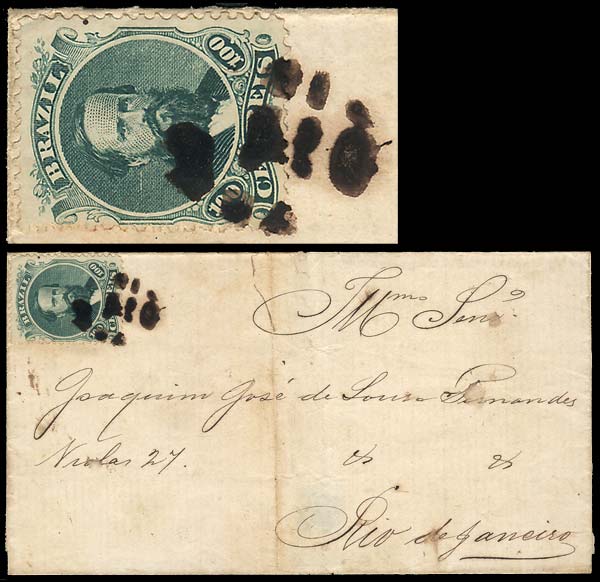 BRAZIL
100
BRAZIL
100
Illmo Senr.
Joaquim José de Souza Fernandes
27.
& &
Rio de Janeiro